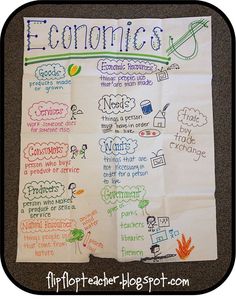 Economics
Goods
products made
or grown
Services
work someone does
for someone else
Consumers
person who buys
a product or
service
Producers
person who makes
a product or sells a
service
Natural Resources
things people use
that come from
nature
Economic Resources
things people use
that are man made
Needs
things a person
must have in order
to live
Wants
things that are
not necessary in
order for a person
to live
Government
parks
teachers
libraries
firemen
Trade
buy
trade
exchange
flipflopteacher.blogspot.com